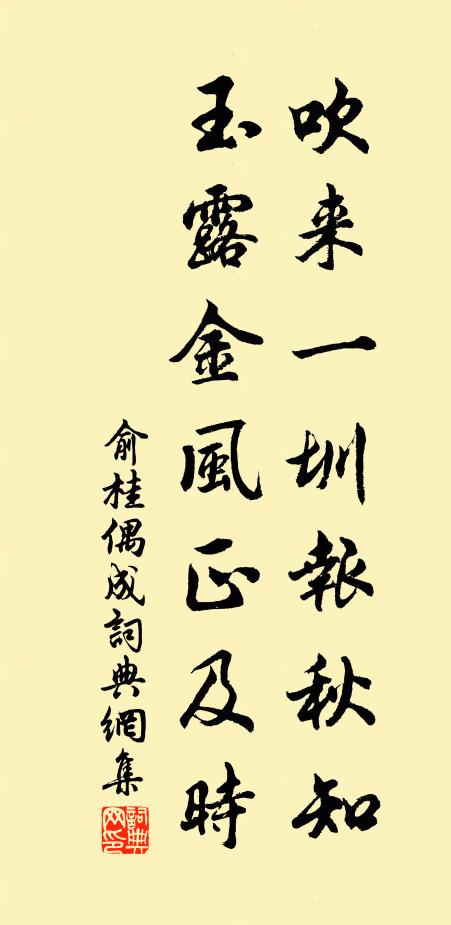 吹来一圳報秋知
玉露金風正及時
俞桂偶成詞典網集
詞典网印